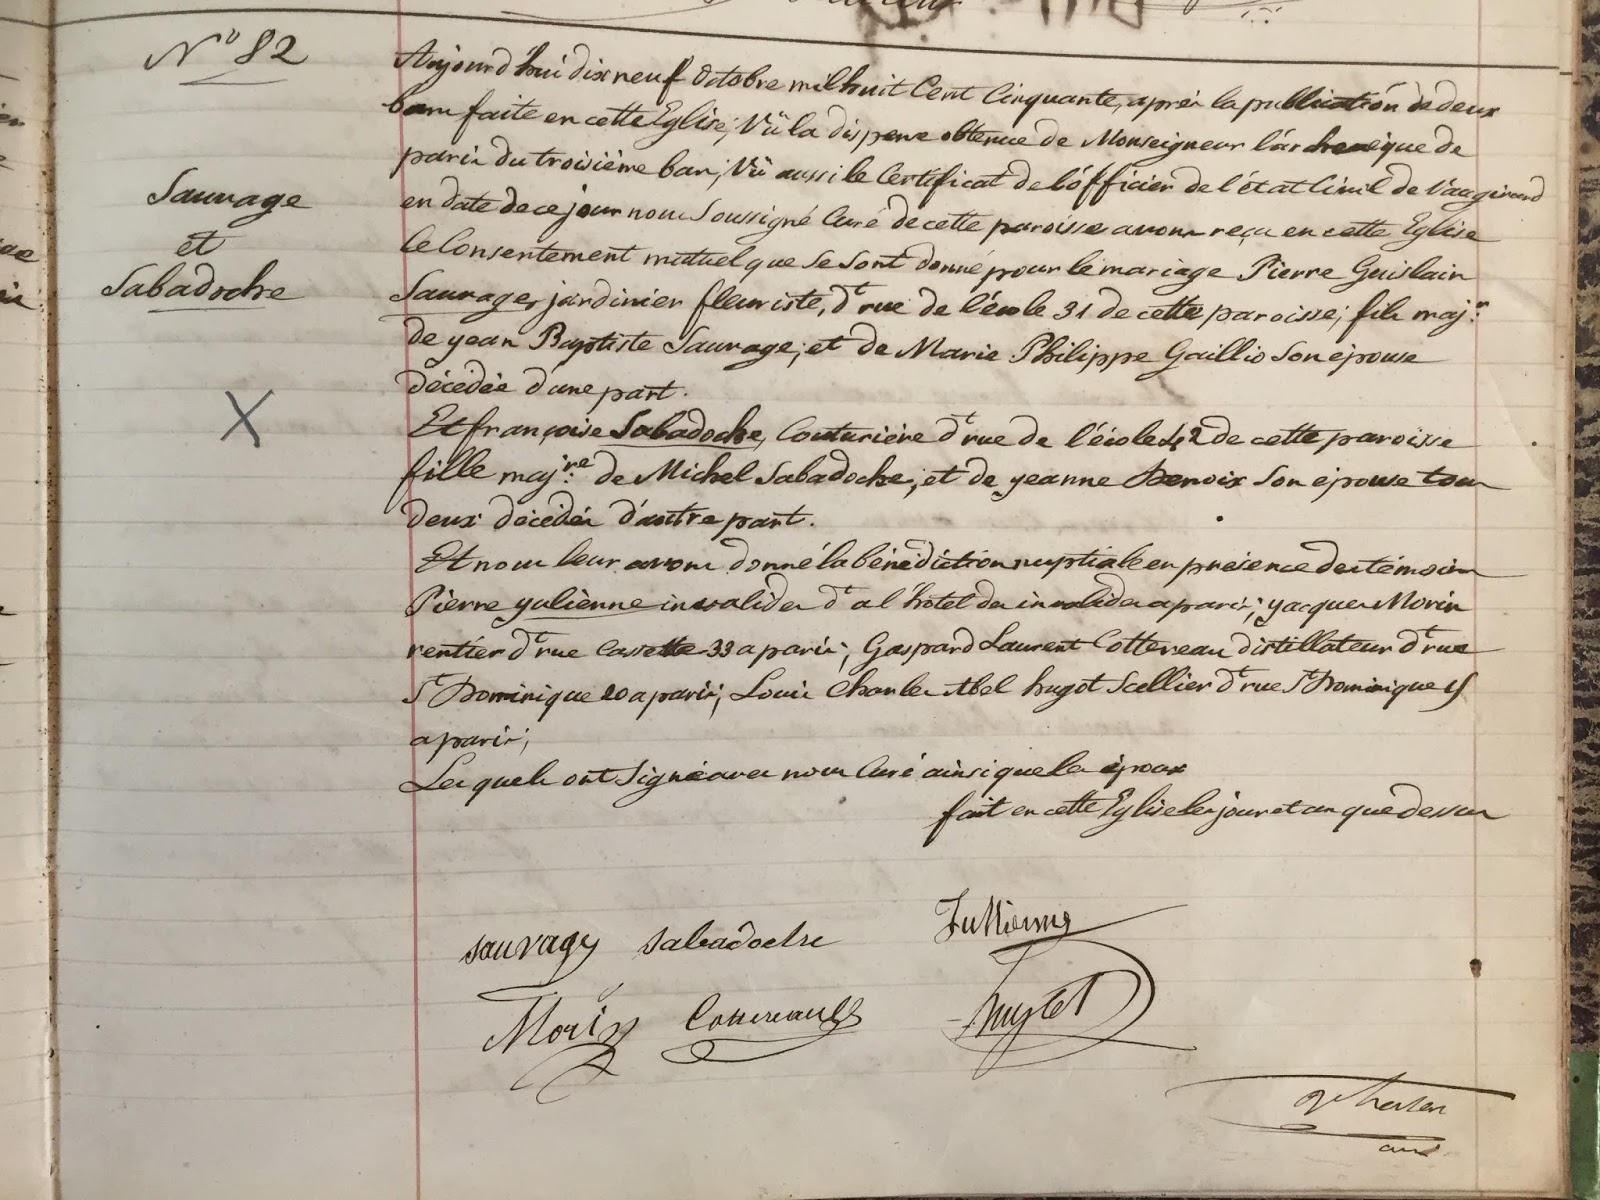 N° 82
Sauvage
et
Sabadoche
Aujourd'hui dix neuf Octobre mil huit Cent Cinquante, après la publication de deux
bans faite en cette Eglise; Vû la dispense obtenue de Monseigneur l'archevêque de
paris du troisième ban; Vû aussi le Certificat de l'officier de l'état Civil de Vaugirard
en date de ce jour nous Soussigné Curé de cette paroisse avons reçu en cette Eglise
le Consentement mutuel que se sont donné pour le mariage Pierre Guislain
Sauvage, jardinier fleuriste, dt rue de l'école 31 de cette paroisse; fils majr
de year Baptiste Sauvage; et de Marie Philippe Gaillio Son épouse
décédée d'une part.
Et françoise Sabadoche, Couturière dt rue de l'école 42 de cette paroisse
fille majre de Michel Sabadoche; et de yeanne Benoix son épouse tous
deux décédés d'autre part.
Et nous leur avons donné la bénédiction nuptiale en présence des témoins
Pierre yulienne invalides dt a l'hôtel des invalides a paris; yacques Morin
rentier dt rue Cassette 33 a paris; Gaspard Laurent Cottereau distillateur dt rue
St Dominique 20 a paris; Louis Charles Abel hugot Scellier dt rue St Dominique
a paris;
Lesquels ont Signé avec nous Curé ainsi que les époux
fait en cette Eglise les jour et an que dessus
sauvage sabadoche Jullienne
Morin Cottereau hugot
curé